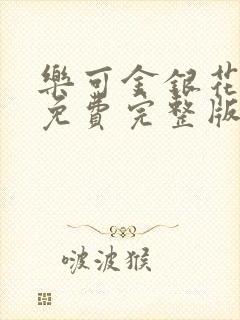 樂可金銀花
免費完整版
啵波猴